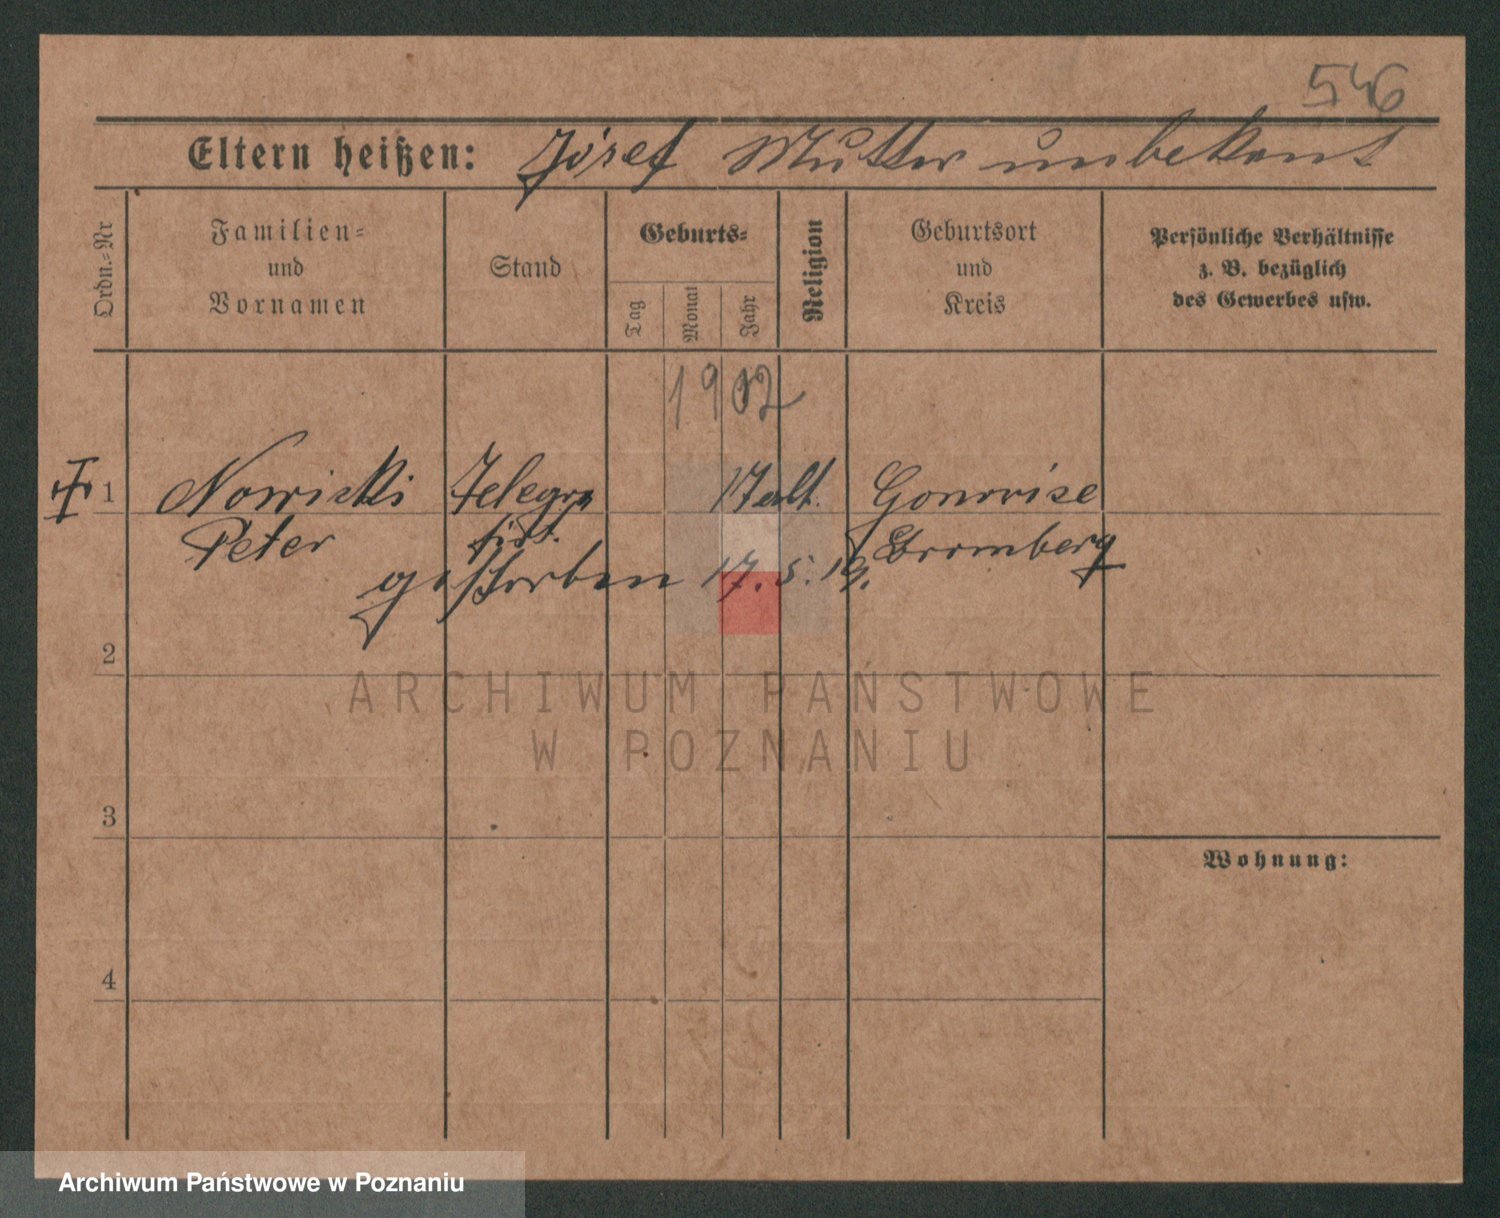 546
Eltern heißen: Józef Mutter unbekant
Ordn.=Nr
Familien=
und
Vornamen
Stand
Geburts=
Tag
Monat
Jahr
Religion
Geburtsort
und
Kreis
Persönliche Verhältnisse
z. B. bezüglich
des Gewerbes usw.
1902
1 Nowicki Telegra 17 alt.
Peter Bromberg
gestorben 17. 5. 19.
2
ARCHIWUM PAŃSTWOWE
W POZNANIU
3
Wohnung:
4
Archiwum Państwowe w Poznaniu